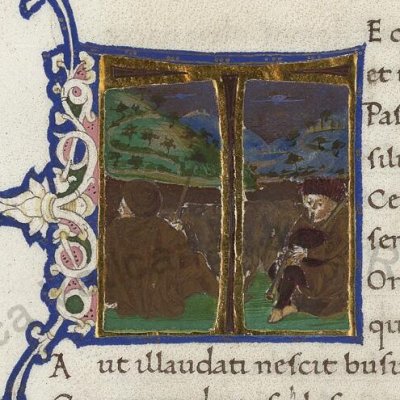 T E
et t
Paſ
ſilu
Ce
ſer
Om
qu
A ut illaudati neſcit buſi